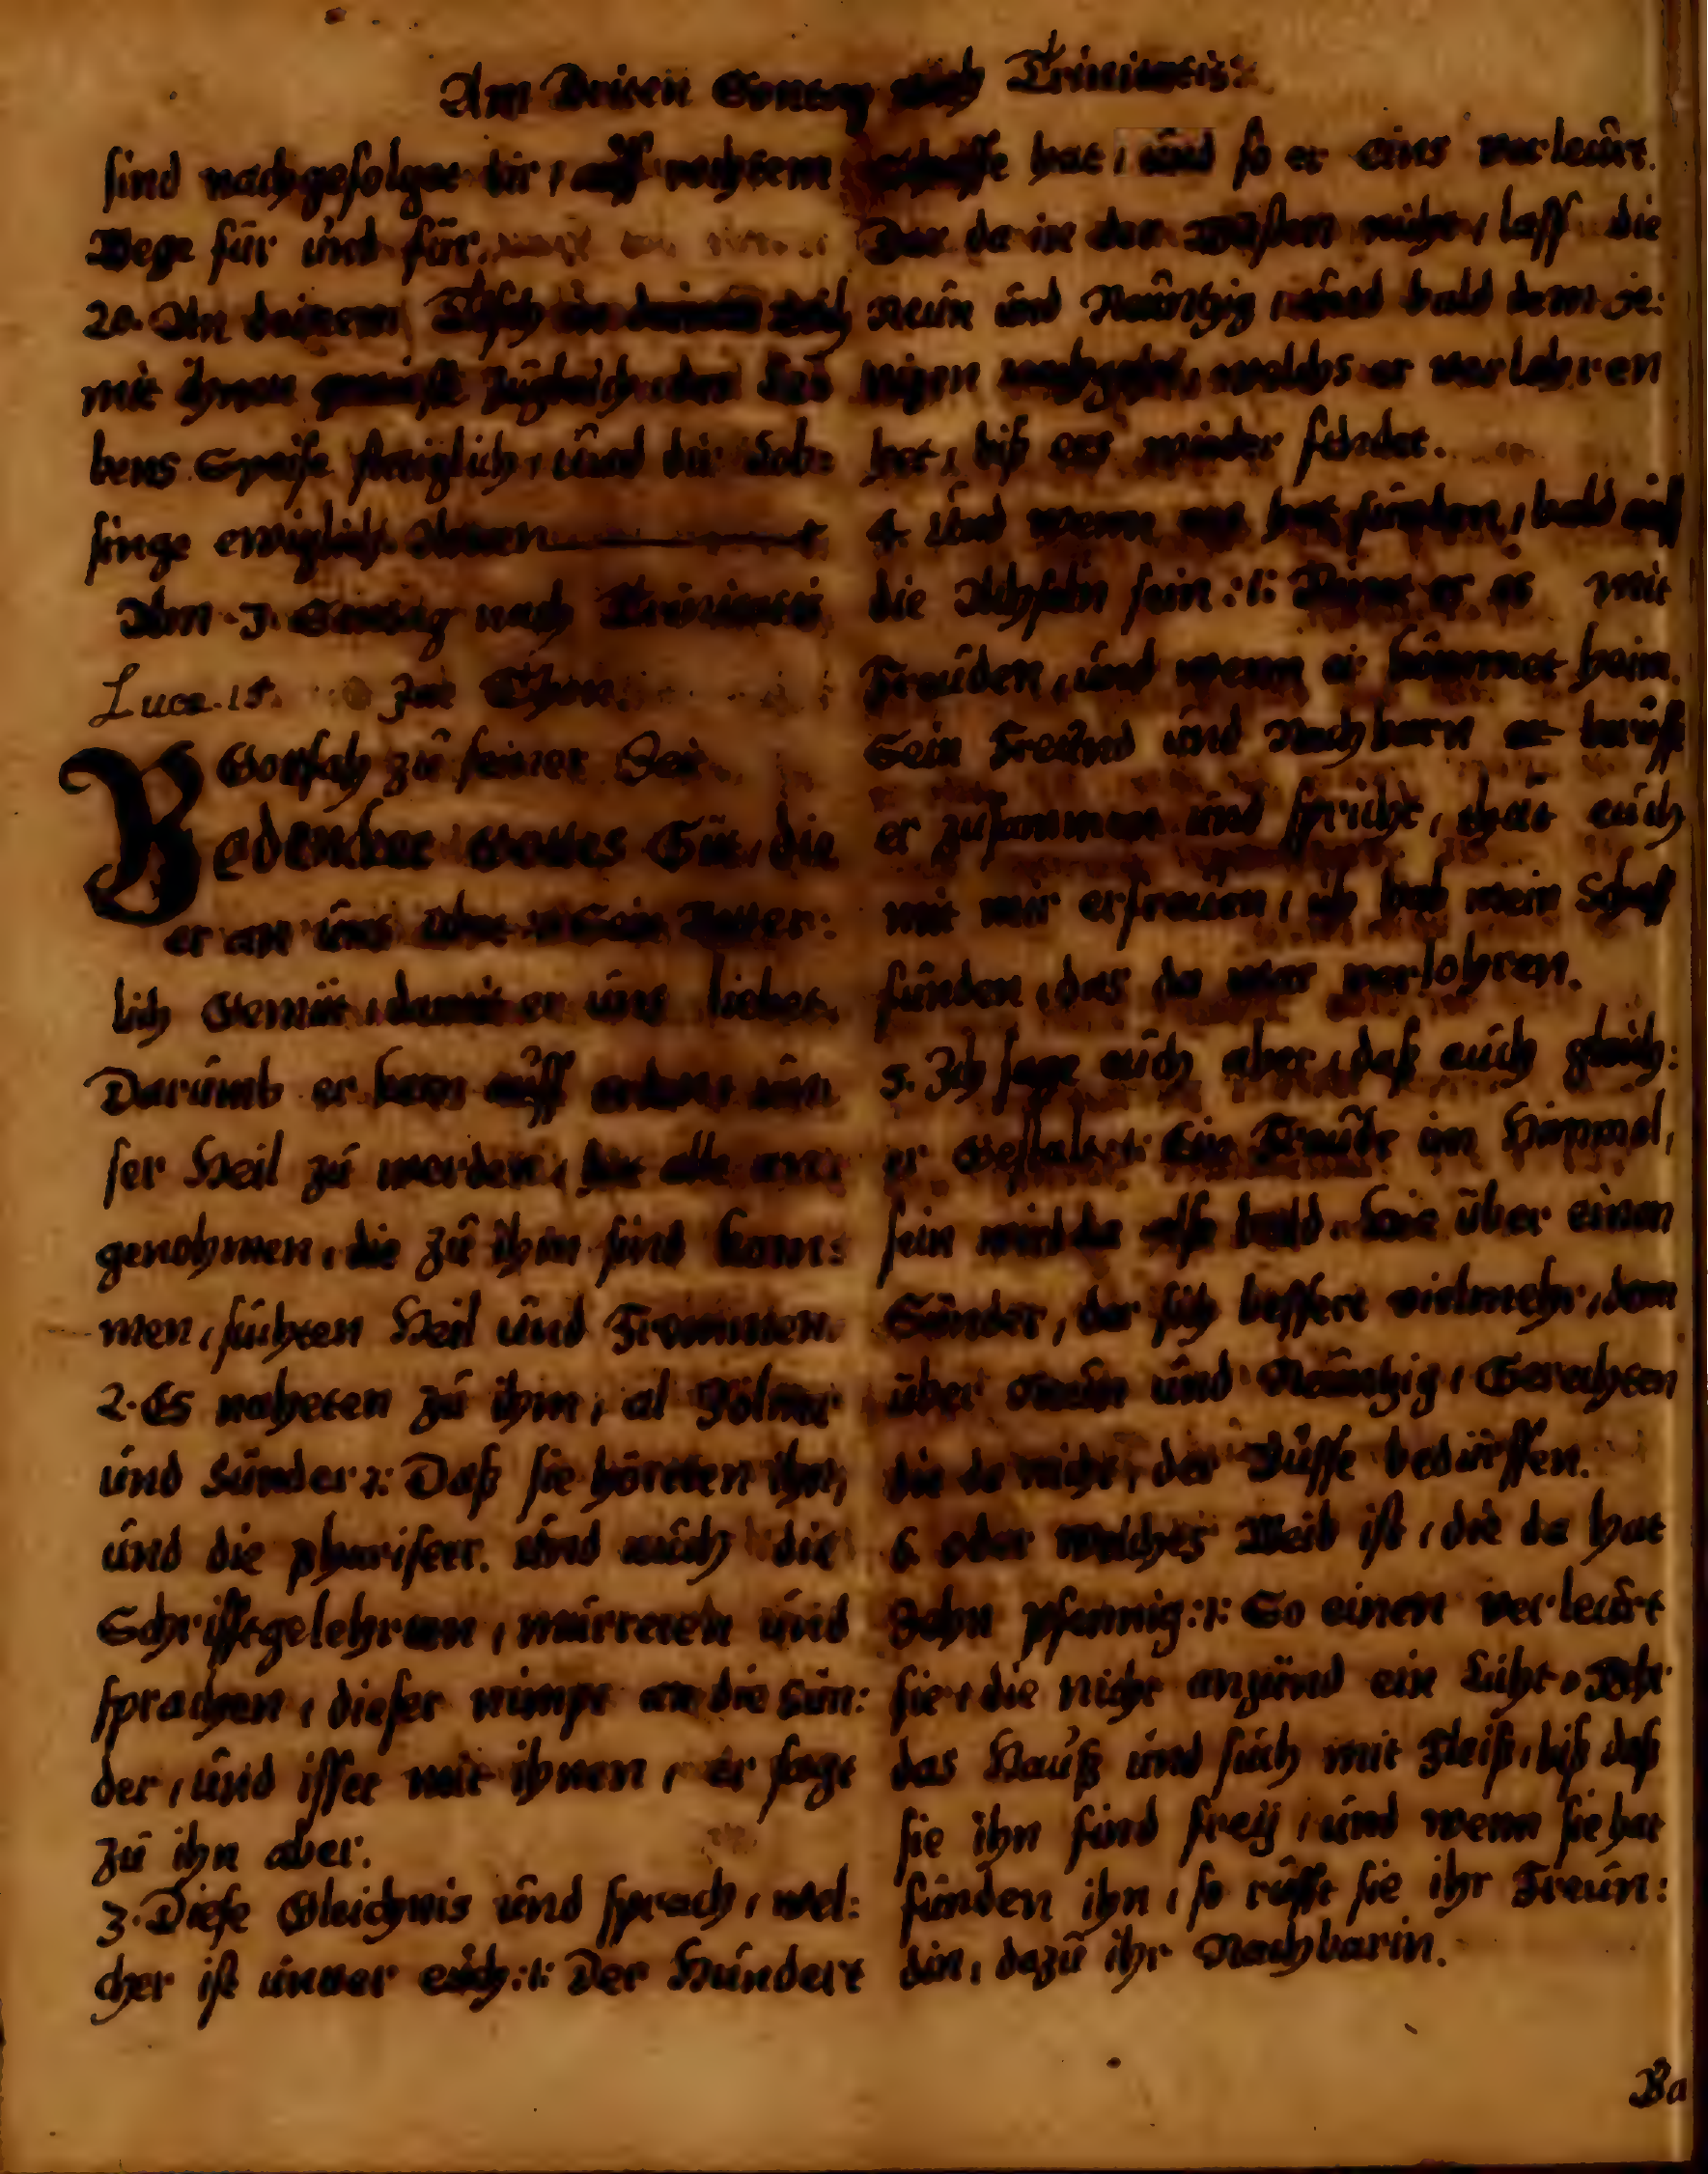 Am Driten Sontag nach Trinitatis.
sind nachgefolget dir, auff rechtem
Wege für und für.
20. An deinem Tisch in deinem
mit ihnen zugleich, des Le:
bens Speise stetiglich, und dir Lob:
singe ewiglich. Amen
Am 3. Sontag nach Trinitatis
Lucæ. 15. Im Thon.
Gott sah zu seiner Zeit
Bedencket Gottes Güt, die
er an uns Sein Vatter:
lich Gemüt, damit er uns liebet.
Darumb er kam auff erden, un
ser Heil zu werden, hat alle an:
genohmen, die zu ihm sind kom:
men, suchten Heil und Frommen.
2. Es naheten zu ihm, al Zölner
und Sünder :/: Daß sie höreten ihn,
und die phariseer. und auch die
Schrifftgelehrten, murreten und
sprachen, dieser nimpt an die Sün:
der, und isset mit ihnen, er sagt
zu ihn aber.
3. Diese Gleichnis und sprach, wel:
cher ist unter euch :/: Der Hundert
Schaffe hat, und so er eins verleurt.
Der da in der Wüsten nicht, lass die
Neun und Neuntzig, und bald dem je:
nigen nachgeht, welchs er verlohren
hat, biß ers wieder findet.
4. Und wenn ers hat funden, bald auf
die Achseln sein :/: Nimt er es mit
Freuden, und wenn er kommet heim.
Sein Freund und Nachbarn er berufft
er zusammen und spricht, thut euch
mit mir erfreuen, ich hab mein Schaff
funden, das da war verlohren.
5. Ich sage euch aber, daß auch gleich:
er Gestalt :/: Ein Freude im Himmel,
sein wird da also bald. hoie über einen
Sünder, der sich bessert vielmehr, dem
über Neun und Neuntzig, Gerechten
die da nicht, der Busse bedürffen.
6. oder welches Weib ist, die da hat
Zehn pfennig :/: So einen verleurt
sie, die nicht anzünd ein Licht, Kehr
das Hauß und such mit Fleiß, biß daß
sie ihn find freÿ, und wenn sie hat
funden ihn, so rufft sie ihr Freun:
din, dazu ihr Nachbarin.
Ba